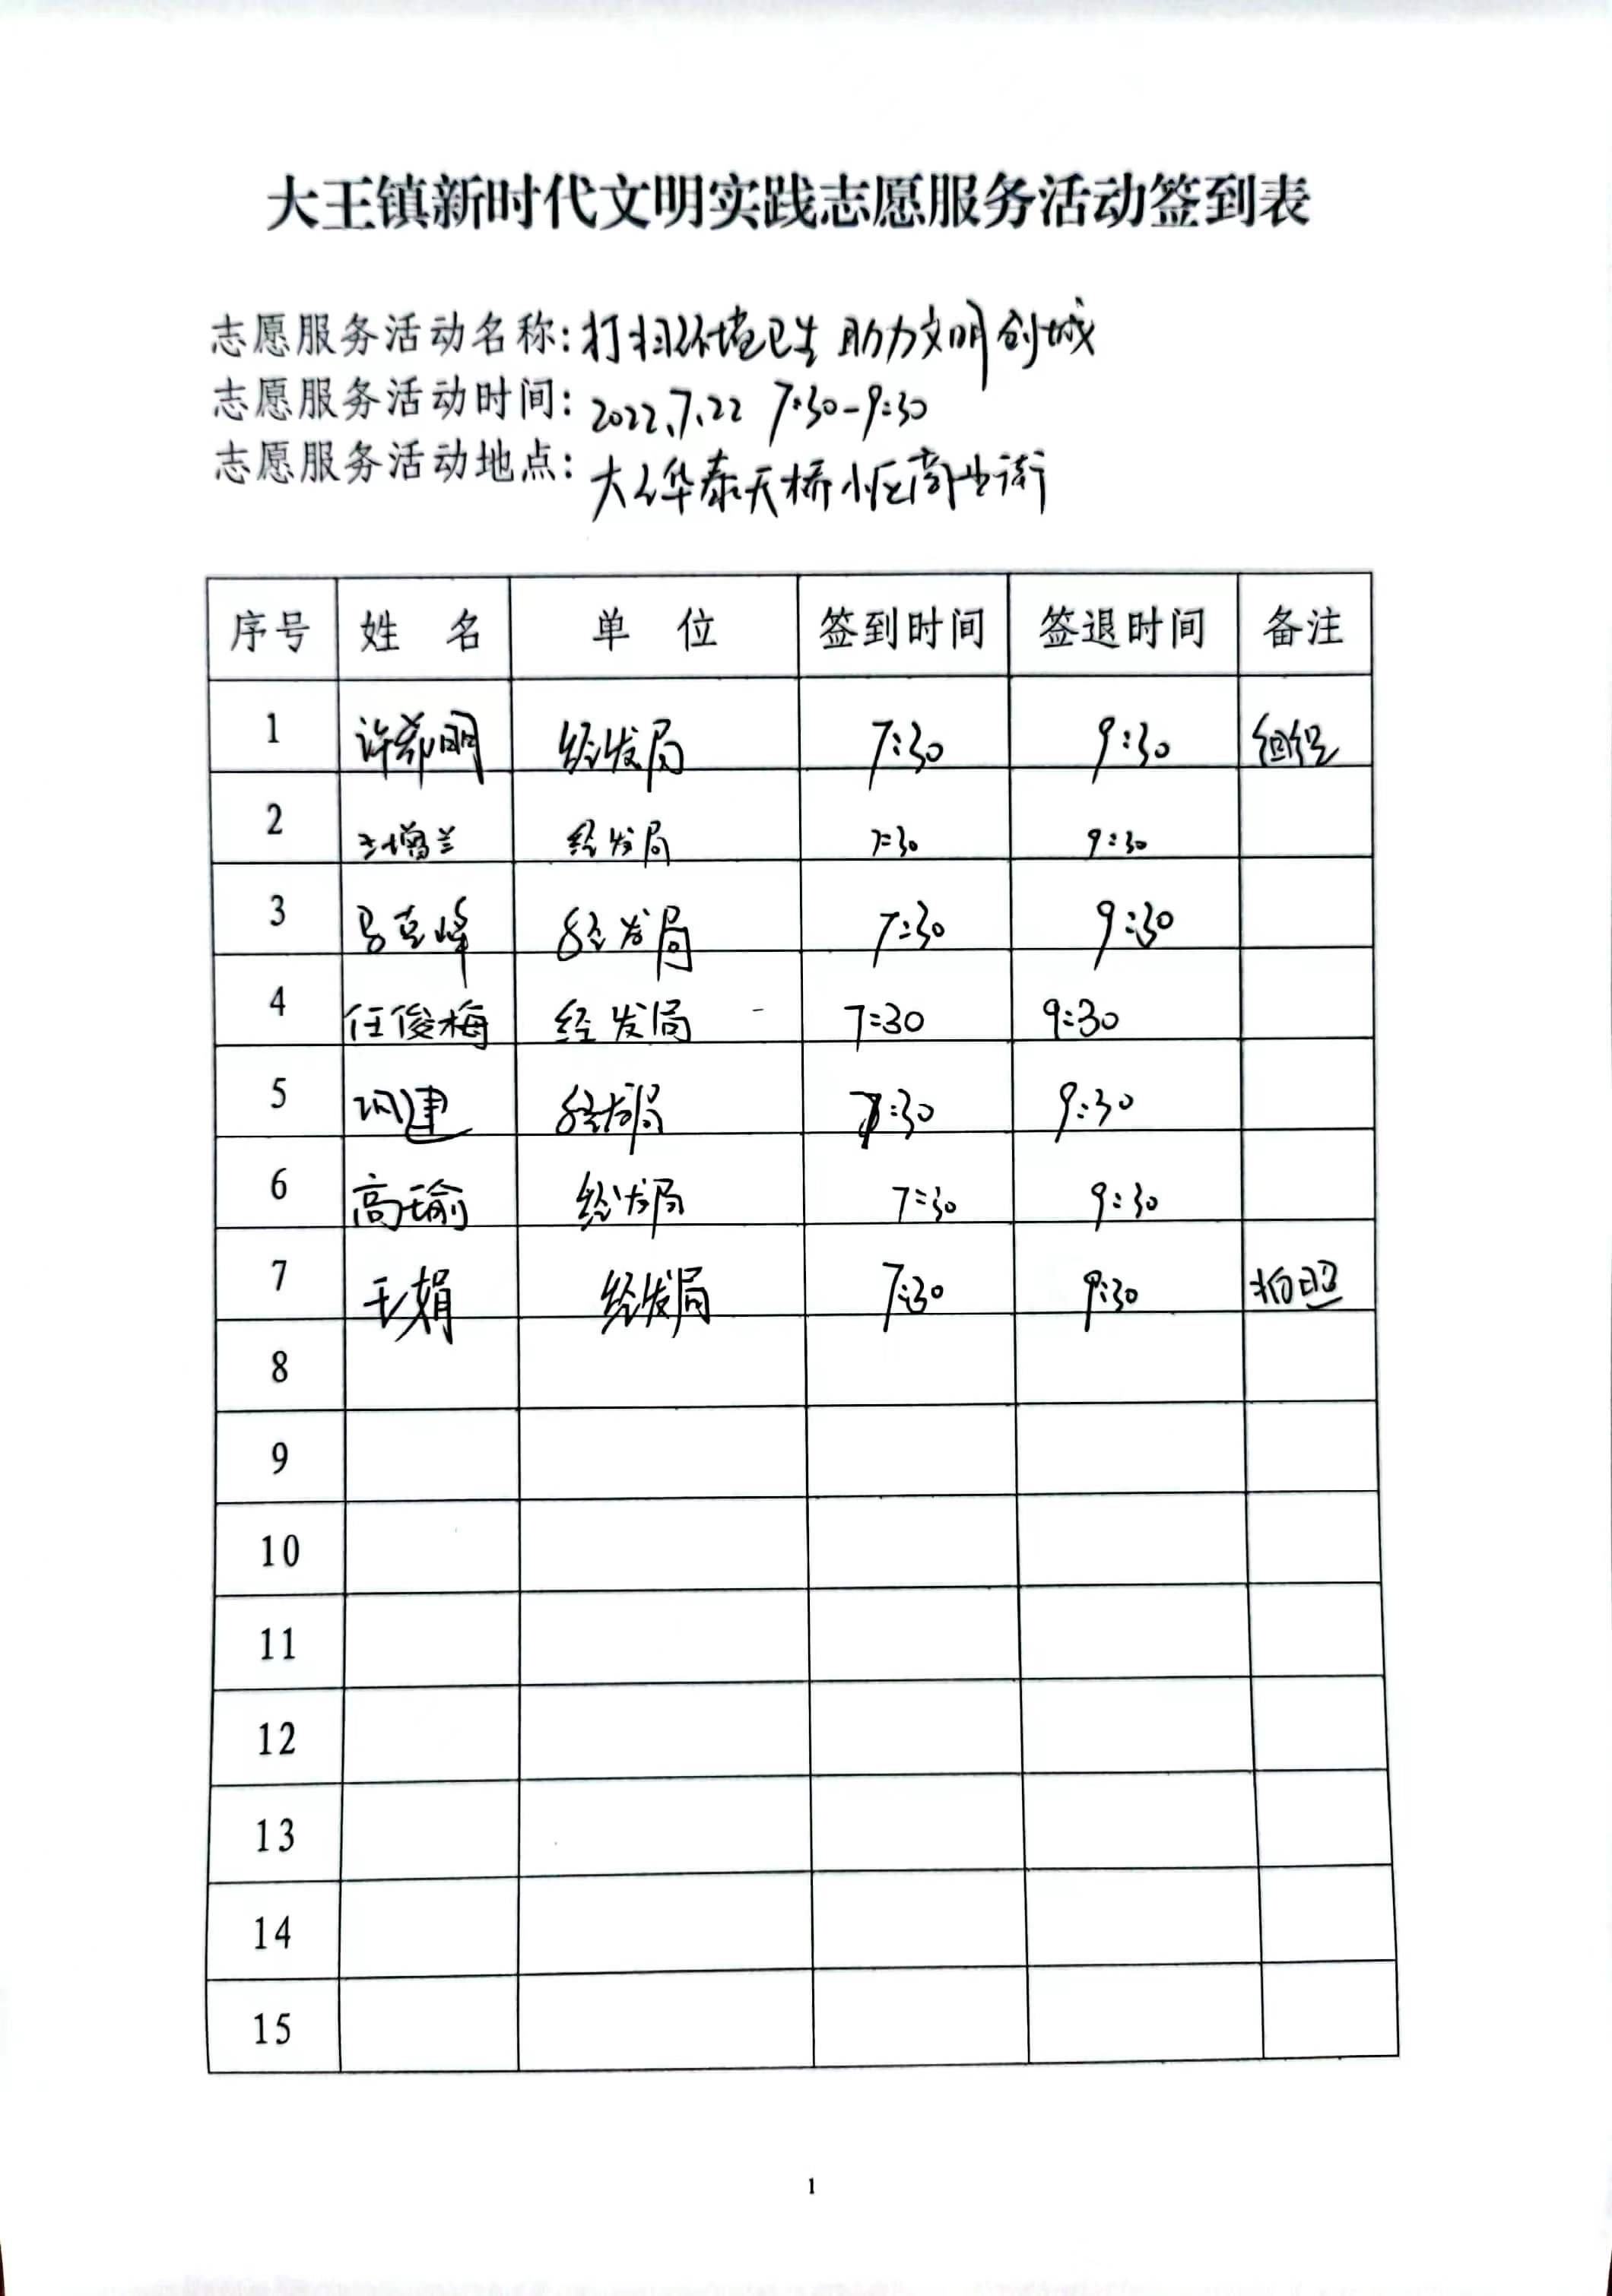 大王镇新时代文明实践志愿服务活动签到表
志愿服务活动名称: 打扫环境卫生 助力文明创城
志愿服务活动时间: 2022.7.22 7:30-9:30
志愿服务活动地点: 大王华泰天桥小区商业街
序号 姓 名 单 位 签到时间 签退时间 备注
1 许郑明 经发局 7:30 9:30
2 王增兰 经发局 7:30 9:30
3 马克峰 经发局 7:30 9:30
4 任俊梅 经发局 7:30 9:30
5 经发局 7:30 9:30
6 高瑜 经发局 7:30 9:30
7 王娟 经发局 7:30 9:30 拍照
8
9
10
11
12
13
14
15
1